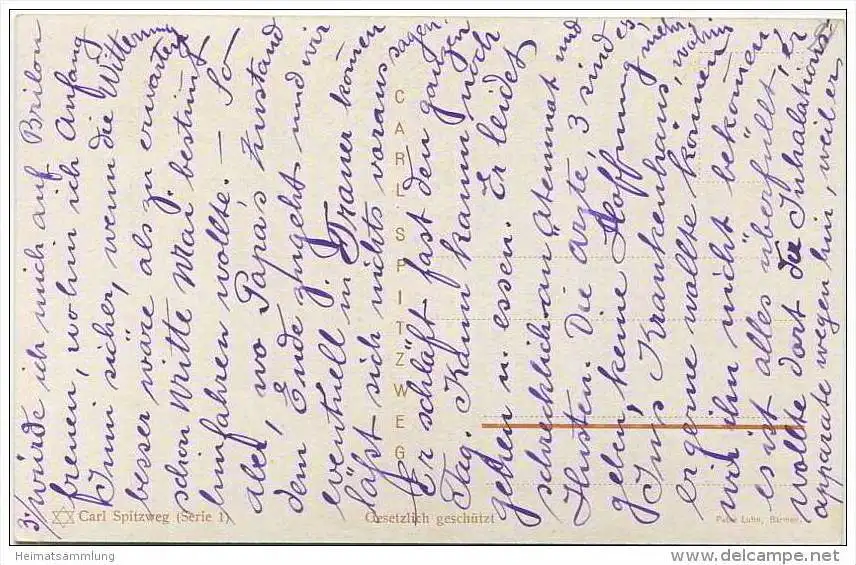 3./ würde ich mich auf Brilon
freuen, wohin ich Anfang
Juni sicher, wenn die Witterung
besser wäre als zu erwarten
schon Mitte Mai bestimmt
hinfahren wollte. – So
aber, wo Papa's Zustand
dem Ende zugeht und wir
eventuell in Trauer kommen
läßt sich nichts voraussagen.
Er schläft fast den ganzen
Tag. Kann kaum noch
gehen u. essen. Er leidet
schrecklich an Atemnot und
Husten. Die Ärzte, 3 sind es
geben keine Hoffnung mehr
Ins Krankenhaus, wohin
er gerne wollte können
wir ihn nicht bekommen
es ist alles überfüllt, er
wollte dort der Inhalations-
apparate wegen hin, weil er
CARL SPITZWEG
Carl Spitzweg (Serie 1)
Gesetzlich geschützt
Peter Luhn, Barmen.
Heimatsammlung
www.delcampe.net